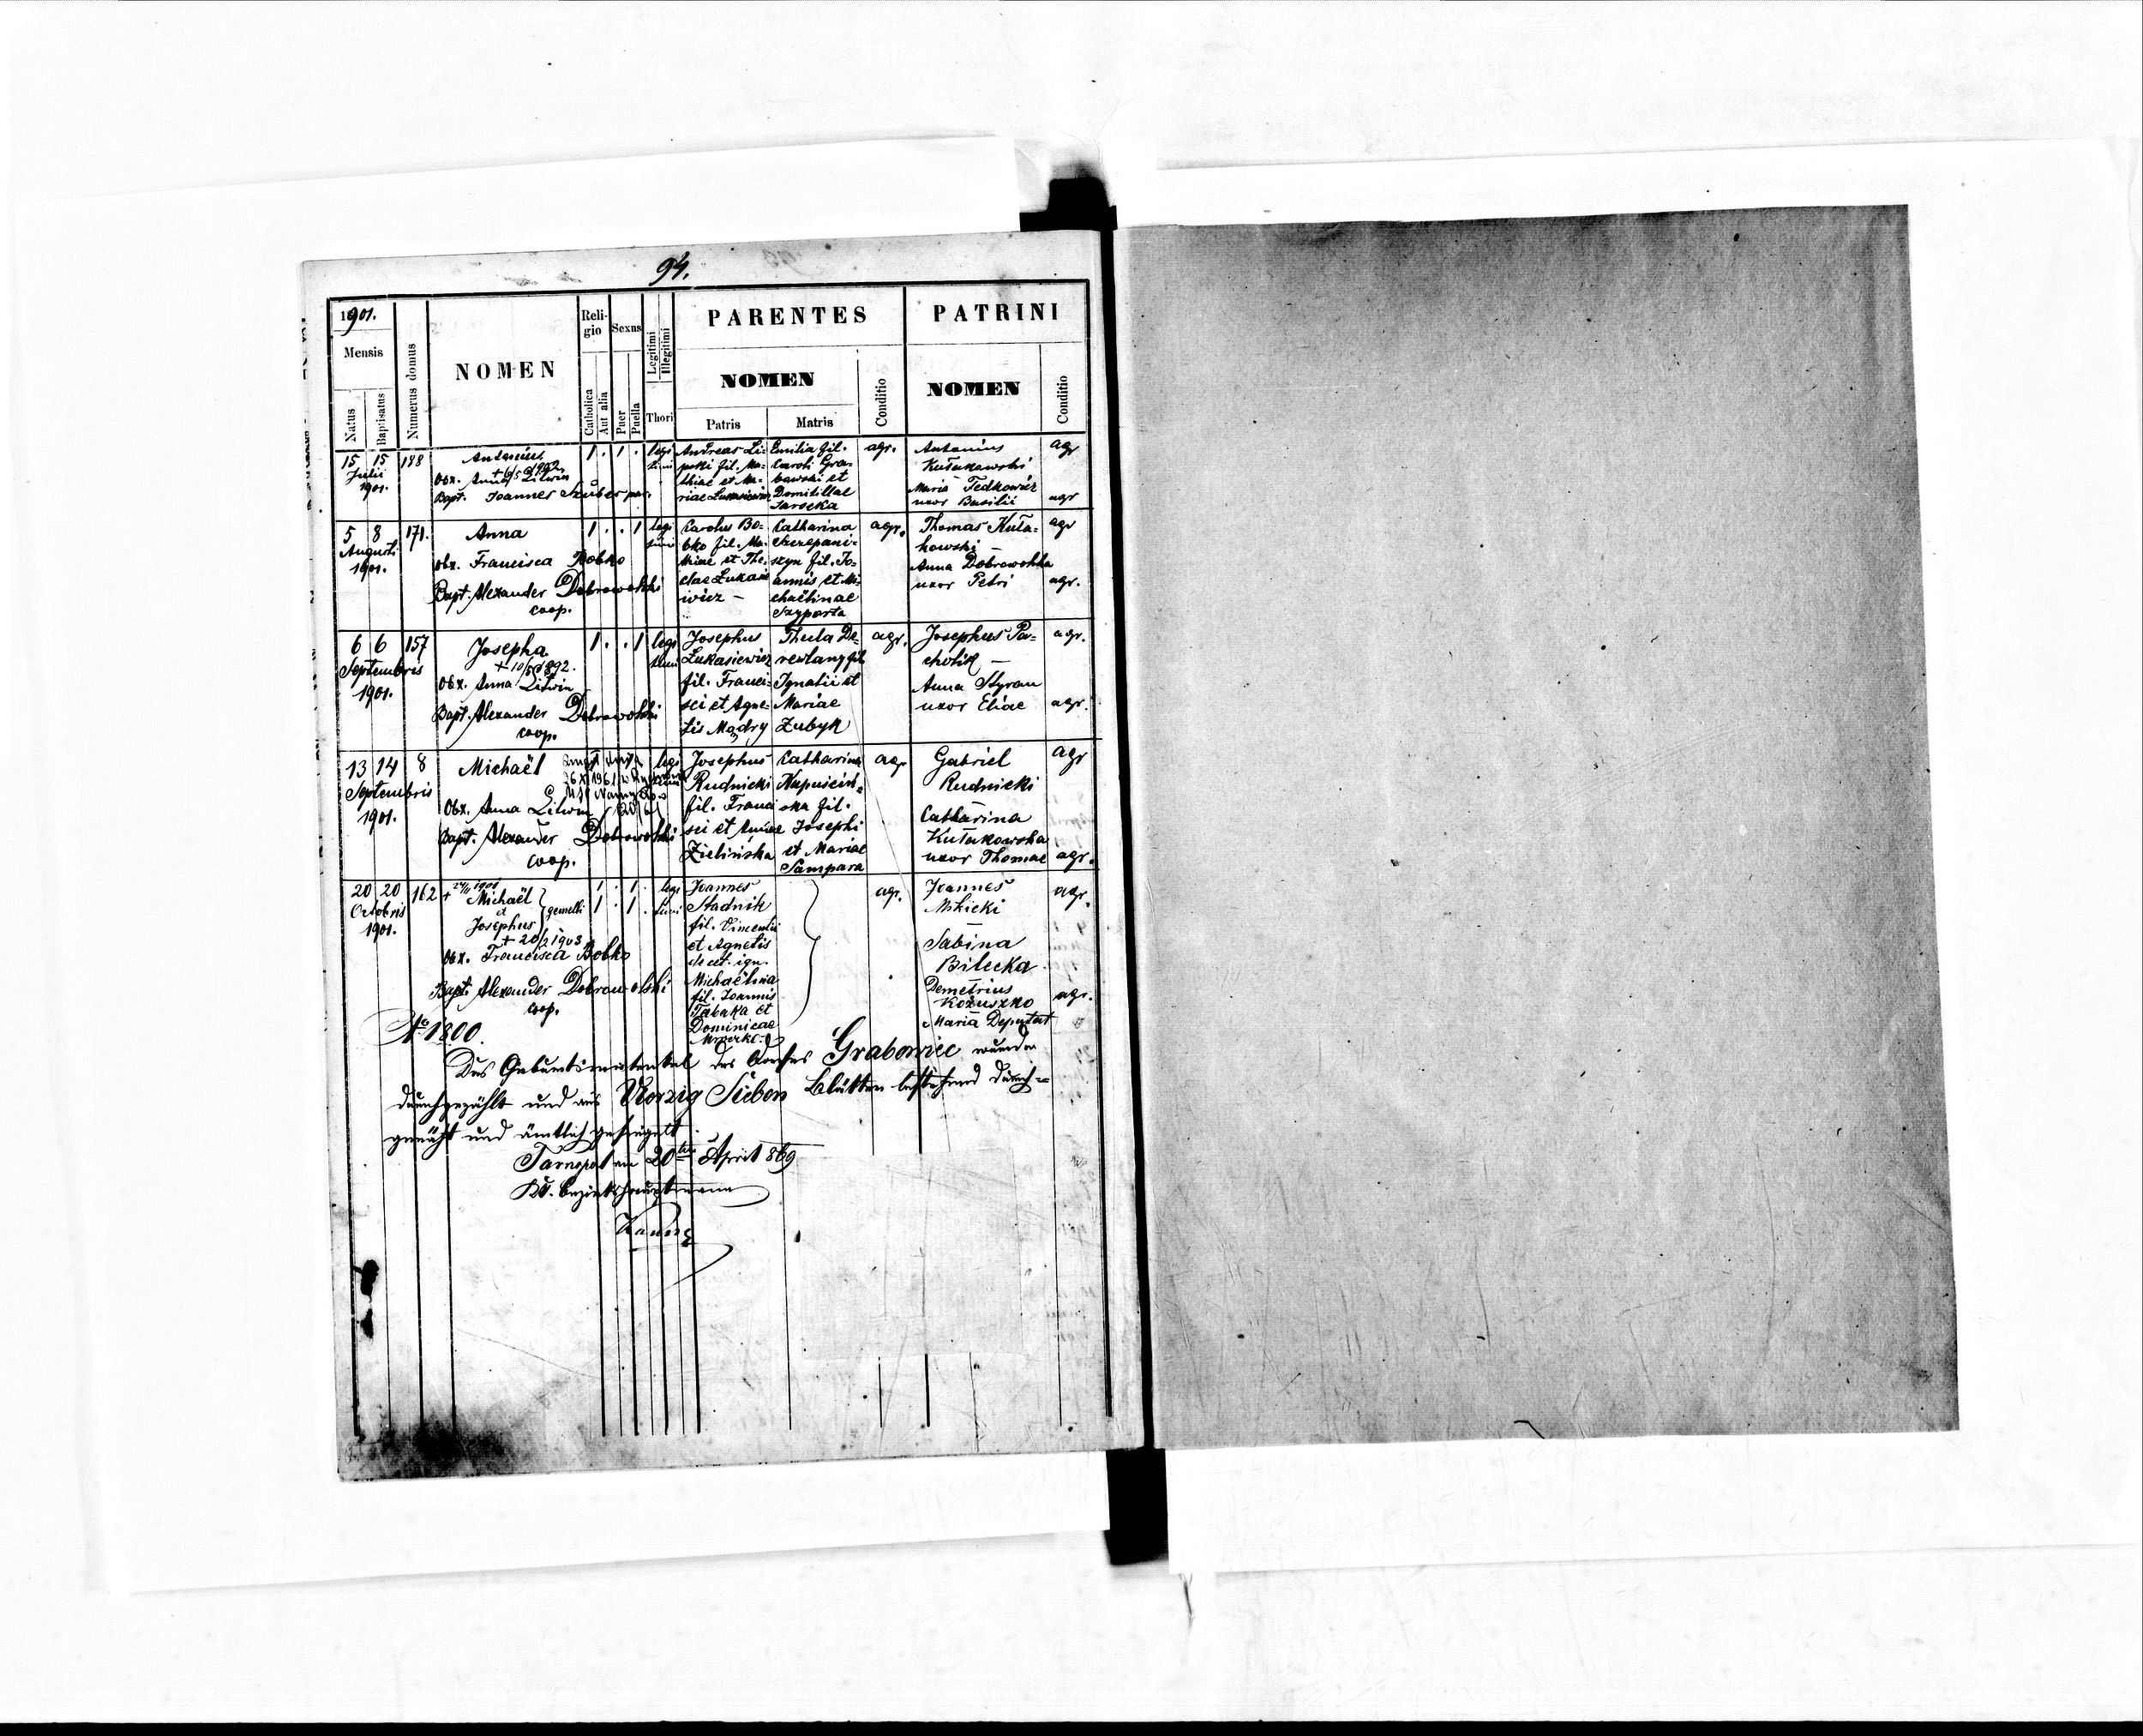 94.
1901.
Mensis
Natus
Baptisatus
Numerus domus
NOMEN
Religio
Catholica
Aut alia
Sexus
Puer
Puella
Legitimi
Illegitimi
Thori
PARENTES
NOMEN
Patris
Matris
Conditio
PATRINI
NOMEN
Conditio
15 15
Julii
1901.
Antonius
Obx. Anna Litwin
Bapt. Joannes Szuber par.
1 . 1 .
legi
timi
Andreas Li-
pski fil. Ma-
thiae et Ma-
riae Lukasiewicz
Emilia fil.
Caroli Gra-
bowski et
Domitillae
Sarocka
agr.
Antonius
Kułakowski
Maria Fedkowicz
uxor Basilii
agr
agr
5 8 171.
Augusti
1901.
Anna
obx. Francisca Bobko
Bapt. Alexander Dobrowolski
coop.
1 . . 1
legi
timi
Carolus Bo-
bko fil. Ma-
thiae et The-
clae Lukasie
wicz -
Catharina
Szczepani-
szyn fil. Jo-
annis et Mi-
chaëlinae
Szyparta
agr.
Thomas Kuła-
kowski
Anna Dobrowolska
uxor Petri
agr
agr.
6 6 157
Septembris
1901.
Josepha
Obx. Anna Litwin
Bapt. Alexander Dobrowolski
coop.
1 . . 1
legi
timi
Josephus
Lukasiewicz
fil. Franci-
sci et Agne-
tis Mądry
Thecla De-
rewlany fil
Ignatii et
Mariae
Zubyk
agr.
Josephus Pa-
cholik —
Anna Styran
uxor Eliae
agr.
agr.
13 14 8
Septembris
1901.
Michaël
Obx. Anna Litwin
Bapt. Alexander Dobrowolski
coop.
legi
timi
Josephus
Rudnicki
fil. Franci
sci et Annae
Zielińska
Catharina
Kapuściń-
ska fil.
Josephi
et Mariae
Sampara
agr
Gabriel
Rudnicki
Catharina
Kułakowska
uxor Thomae
agr
agr.
20 20 162
Octobris
1901.
Michaël
et
Josephus
gemelli
+ 20/2 1903
Obx. Francisca Bobko
Bapt. Alexander Dobrowolski
coop.
1 . 1 .
1 . 1 .
legi
timi
Joannes
Stadnik
fil. Vincentii
et Agnetis
de cet. ign.
Michaëlina
fil. Joannis
Tabaka et
Dominicae
agr.
Joannes
Mikicki
Sabina
Bilecka
Demetrius
Kożuszko
Maria Deputat
agr.
agr.
No 1800.
Das Geburtsmatrikel des Dorfes Grabowiec wurde
durchgezählt und aus Vierzig Sieben Blätter bestehend durch-
genäht und ämtlich gesiegelt.
Tarnopol am 20ten April 869
KK. Bezirkshauptmann